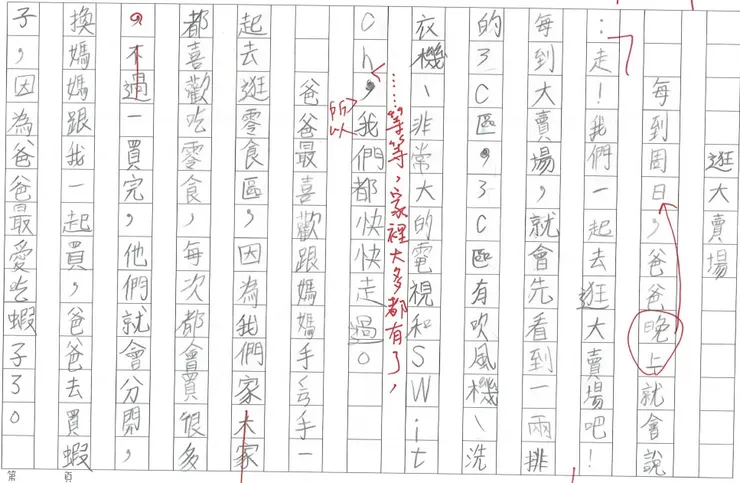 逛大賣場
每到周日,爸爸晚上就會說
:走!我們一起去逛大賣場吧!
每到大賣場,就會先看到一兩排
的3C區,3C區有吹風機、洗
衣機、非常大的電視和SWit
Ch,我們都快快走過。
……等等,家裡大多都有了,
所以
爸爸最喜歡跟媽媽手ㄑ手一
起去逛零食區,因為我們家大家
都喜歡吃零食,每次都會買很多
,不過一買完,他們就會分開,
換媽媽跟我一起買,爸爸去買蝦
子,因為爸爸最愛吃蝦子了。
第 頁